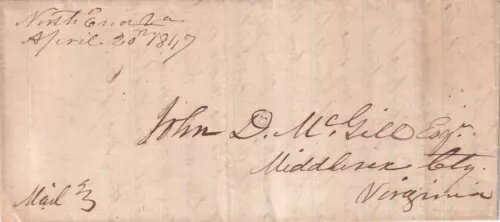 North End Va
April 20th 1847
John D. McGill Esqr.
Middlesex Cty.
Virginia
Mail